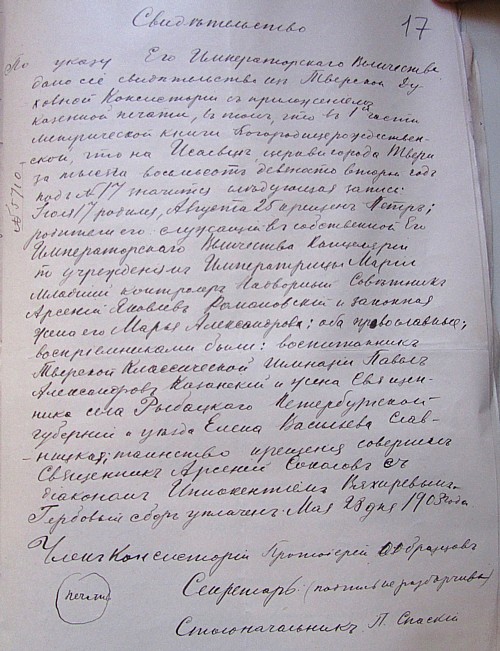 Свидѣтельство
17
По указу Его Императорскаго Величества
дано сіе свидѣтельство изъ Тверской Ду-
ховной Консисторіи съ приложеніемъ
казенной печати, въ томъ, что въ 1й части
метрической книги Богородицерождествен-
ской, что на Исаевцѣ церкви города Твери
за тысяча восемьсотъ девяносто второй годъ
подъ №17 значится слѣдующая запись:
Іюля 17 родился, Августа 25 крещенъ Петръ;
родители его: служащій въ собственной Его
Императорскаго Величества Канцеляріи
по учрежденіямъ Императрицы Маріи
младшій контролеръ Надворный Совѣтникъ
Арсеній Яковлевъ Романовскій и законная
жена его Марья Александрова; оба православные;
воспріемниками были: воспитанникъ
Тверской Классической Гимназіи Павелъ
Александровъ Казанскій и жена Священ-
ника села Рыбацкаго Петербургской
губерніи и уѣзда Елена Васильева Слав-
ницкая; таинство крещенія совершилъ
Священникъ Арсеній Соколовъ съ
діакономъ Иннокентіемъ Вяхиревымъ.
Гербовый сборъ уплаченъ. Мая 28 дня 1903 года
Членъ Консисторіи Протоіерей Образцовъ
печать
Секретарь: (подпись неразборчива)
Столоначальникъ П. Спаскій
№5710